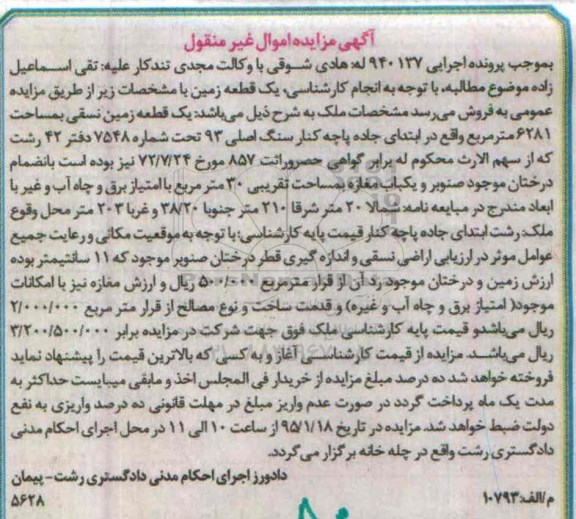 آگهی مزایده اموال غیر منقول
بموجب پرونده اجرایی ۱۳۷ ۹۴۰ له: هادی شوقی با وکالت مجدی تندکار علیه: تقی اسماعیل
زاده موضوع مطالبه، با توجه به انجام کارشناسی، یک قطعه زمین با مشخصات زیر از طریق مزایده
عمومی به فروش می رسد مشخصات ملک به شرح ذیل می‌باشد: یک قطعه زمین نسقی بمساحت
۶۲۸۱ مترمربع واقع در ابتدای جاده پاچه کنار سنگ اصلی ۹۳ تحت شماره ۷۵۴۸ دفتر ۴۲ رشت
که از سهم الارث محکوم له برابر گواهی حصروراثت ۸۵۷ مورخ ۷۲/۷/۲۴ نیز بوده است بانضمام
درختان موجود صنوبر و یکباب مغازه بمساحت تقریبی ۳۰ متر مربع با امتیاز برق و چاه آب و غیر با
ابعاد مندرج در مبایعه نامه: شمالا ۲۰ متر شرقا ۲۱۰ متر جنوبا ۳۸/۲۰ و غربا ۲۰۳ متر محل وقوع
ملک: رشت ابتدای جاده پاچه کنار قیمت پایه کارشناسی: با توجه به موقعیت مکانی و رعایت جمیع
عوامل موثر در ارزیابی اراضی نسقی و اندازه گیری قطر درختان صنوبر موجود که ۱۱ سانتیمتر بوده
ارزش زمین و درختان موجود در آن از قرار مترمربع ۵۰۰/۰۰۰ ریال و ارزش مغازه نیز با امکانات
موجود( امتیاز برق و چاه آب و غیره) و قدمت ساخت و نوع مصالح از قرار متر مربع ۲/۰۰۰/۰۰۰
ریال می‌باشدو قیمت پایه کارشناسی ملک فوق جهت شرکت در مزایده برابر ۳/۲۰۰/۵۰۰/۰۰۰
ریال می‌باشد. مزایده از قیمت کارشناسی آغاز و به کسی که بالاترین قیمت را پیشنهاد نماید
فروخته خواهد شد ده درصد مبلغ مزایده از خریدار فی المجلس اخذ و مابقی میبایست حداکثر به
مدت یک ماه پرداخت گردد در صورت عدم واریز مبلغ در مهلت قانونی ده درصد واریزی به نفع
دولت ضبط خواهد شد. مزایده در تاریخ ۹۵/۱/۱۸ از ساعت ۱۰ الی ۱۱ در محل اجرای احکام مدنی
دادگستری رشت واقع در چله خانه برگزار می گردد.
دادورز اجرای احکام مدنی دادگستری رشت- پیمان
م/الف:۱۰۷۹۳ ۵۶۲۸